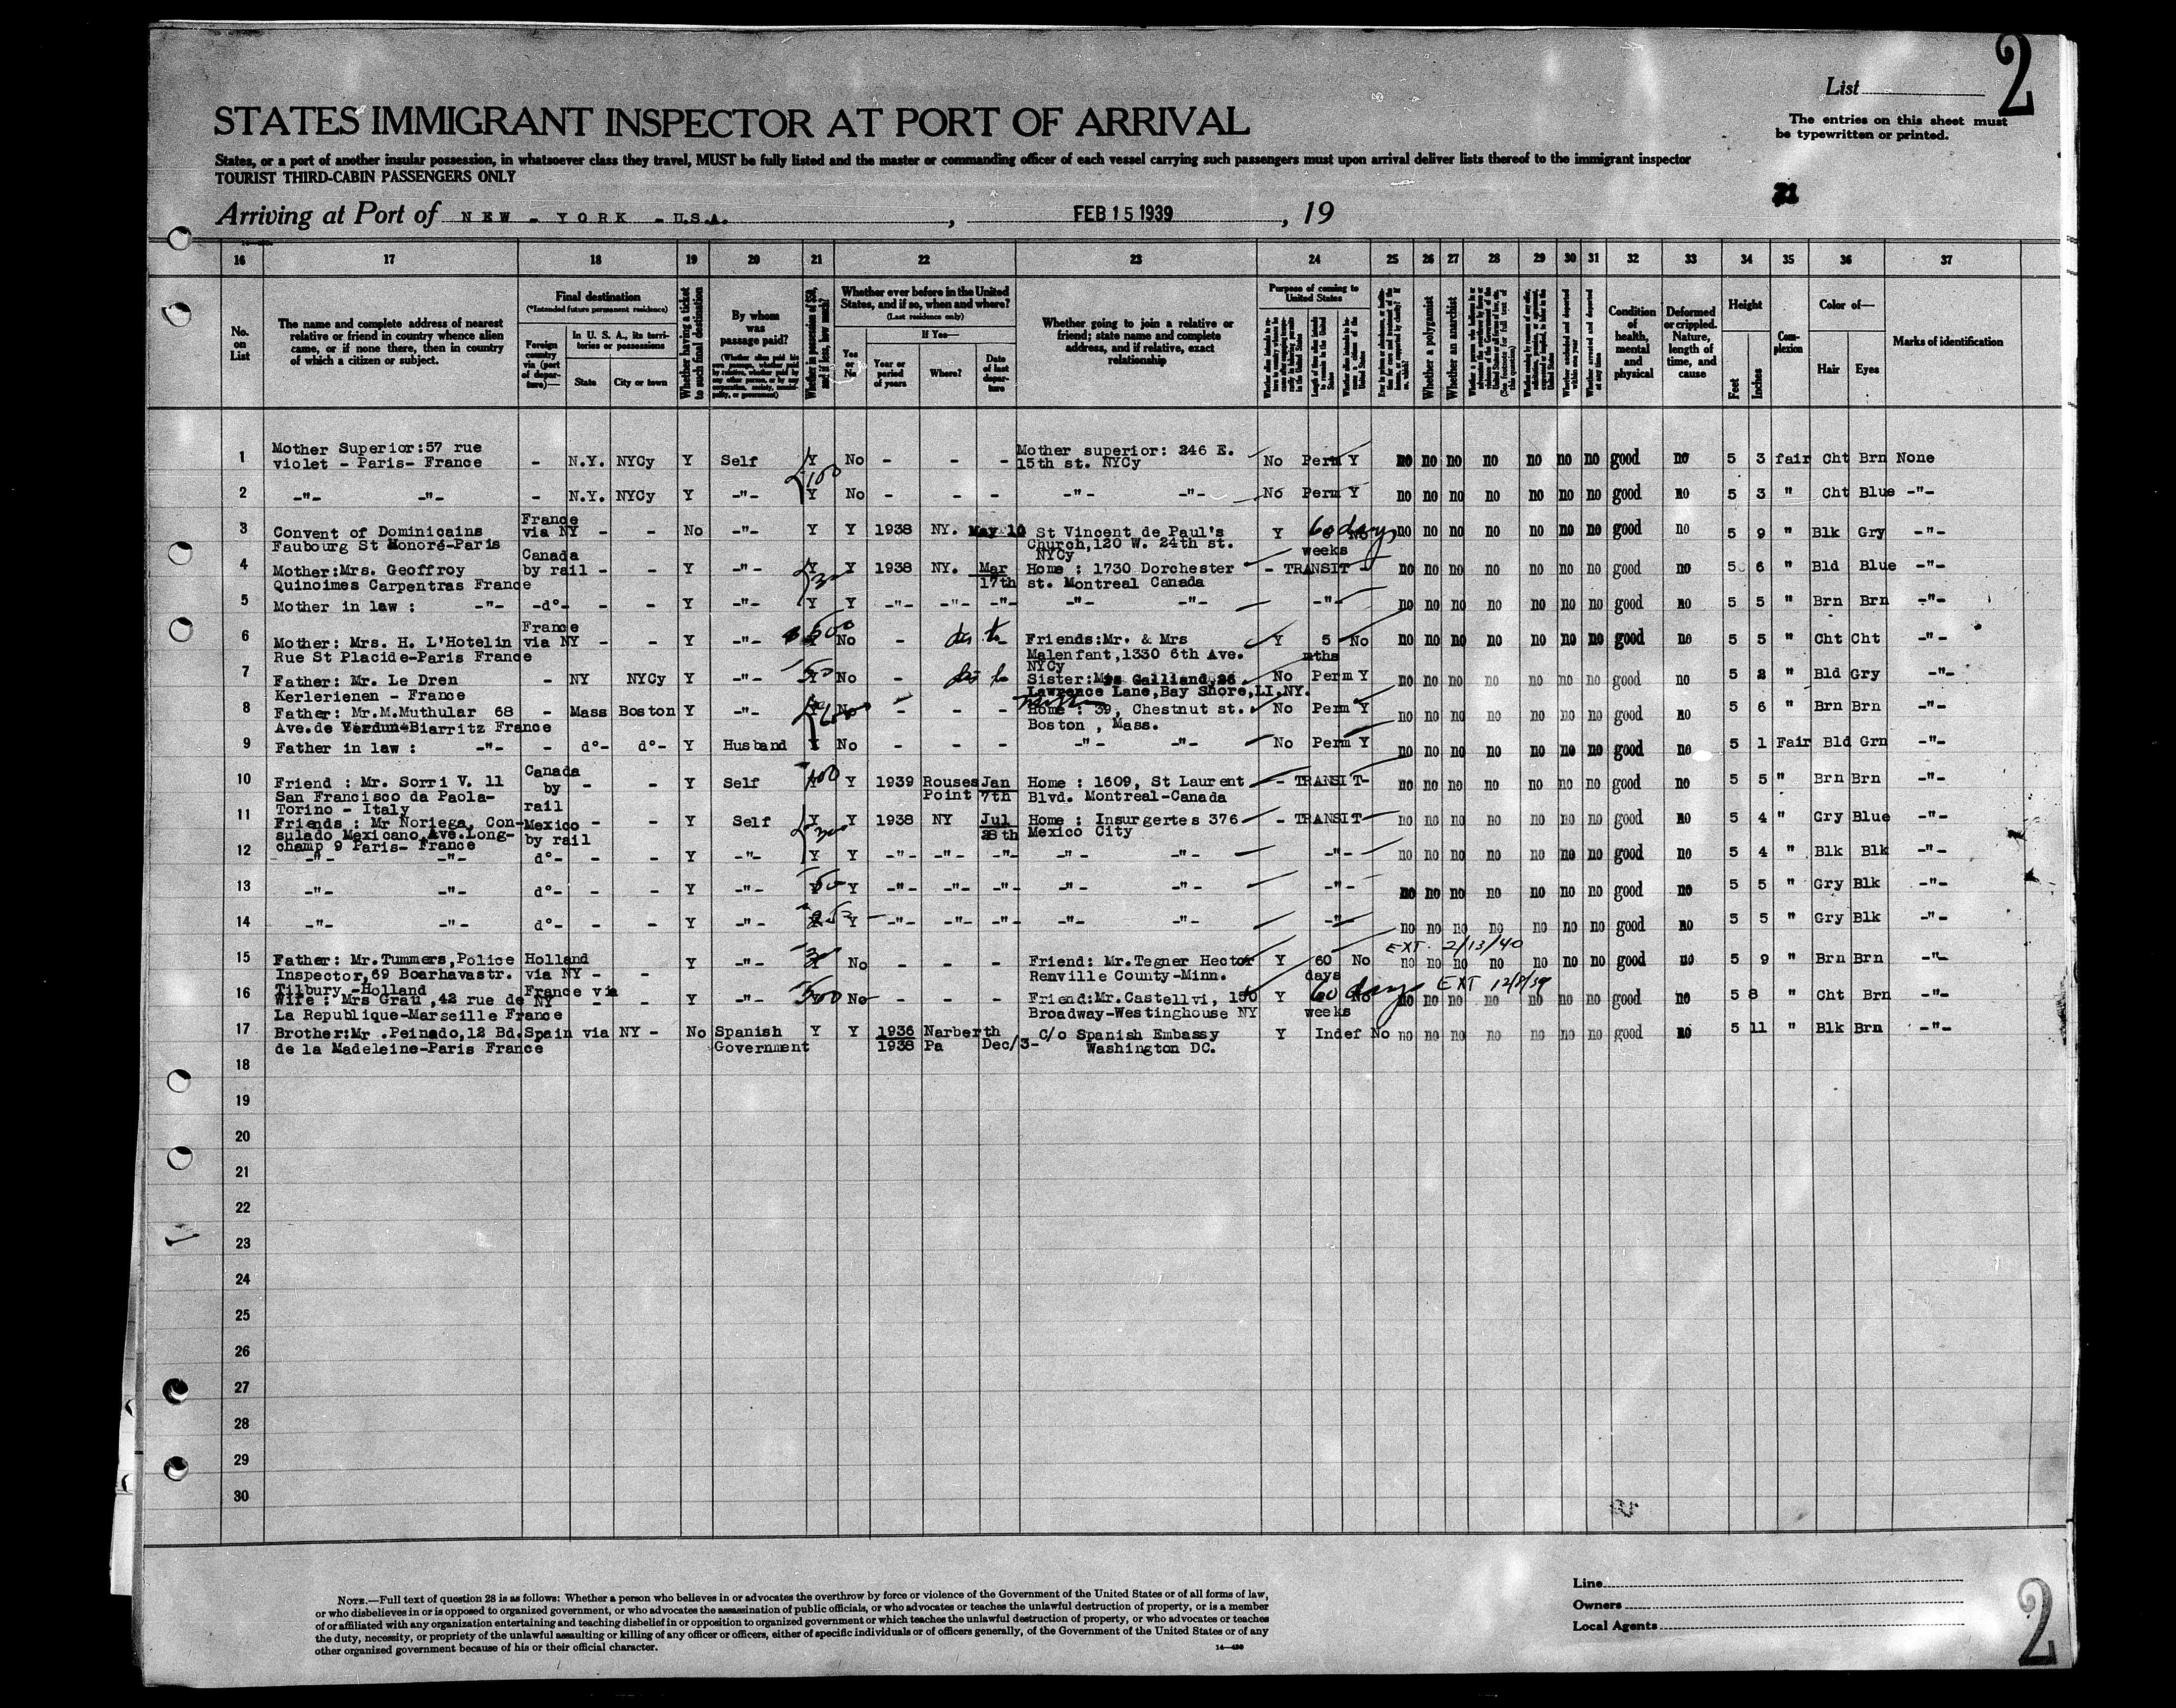 2
List
The entries on this sheet must
be typewritten or printed.
STATES IMMIGRANT INSPECTOR AT PORT OF ARRIVAL
States, or a port of another insular possession, in whatsoever class they travel, MUST be fully listed and the master or commanding officer of each vessel carrying such passengers must upon arrival deliver lists thereof to the immigrant inspector
TOURIST THIRD-CABIN PASSENGERS ONLY
21
Arriving at Port of NEW - YORK - U.S.A. , FEB 15 1939 , 19
16 17 18 19 20 21 22 23 24 25 26 27 28 29 30 31 32 33 34 35 36 37
No. on List
The name and complete address of nearest relative or friend in country whence alien came, or if none there, then in country of which a citizen or subject.
Final destination
(*Intended future permanent residence)
Foreign country via (port of departure)—
In U. S. A., its territories or possessions
State
City or town
Whether having a ticket to such final destination
By whom was passage paid?
Whether in possession of $50, and if less, how much?
Whether ever before in the United States, and if so, when and where?
(Last residence only)
If Yes—
Yes or No
Year or period of years
Where?
Date of last departure
Whether going to join a relative or friend; state name and complete address, and if relative, exact relationship
Purpose of coming to United States
Whether a polygamist
Whether an anarchist
Condition of health, mental and physical
Deformed or crippled. Nature, length of time, and cause
Height
Feet
Inches
Complexion
Color of—
Hair
Eyes
Marks of identification
1 Mother Superior:57 rue violet - Paris- France - N.Y. NYCy Y Self Y No - - - Mother superior: 246 E. 15th st. NYCy No Perm Y no no no no no no no good no 5 3 fair Cht Brn None
100
2 -"- -"- - N.Y. NYCy Y -"- Y No - - - -"- -"- No Perm Y no no no no no no no good no 5 3 " Cht Blue -"-
3 Convent of Dominicains Faubourg St Honoré-Paris France via NY - - No -"- Y Y 1938 NY. May 10 St Vincent de Paul's Church,120 W. 24th st. NYCy Y 60 days weeks No no no no no no no no good no 5 9 " Blk Gry -"-
4 Mother:Mrs. Geoffroy Quinoimes Carpentras France Canada by rail - - Y -"- Y Y 1938 NY. Mar 17th Home : 1730 Dorchester st. Montreal Canada - TRANSIT - no no no no no no no good no 5 6 " Bld Blue -"-
5 Mother in law : -"- -d°- - - Y -"- Y Y -"- -"- -"- -"- -"- -"- no no no no no no no good no 5 5 " Brn Brn -"-
6 Mother: Mrs. H. L'Hotelin Rue St Placide-Paris France France via NY - - Y -"- $500 Y No - Friends:Mr. & Mrs Malenfant,1330 6th Ave. NYCy Y 5 mths No no no no no no no no good no 5 5 " Cht Cht -"-
7 Father: Mr. Le Dren Kerlerienen - France - NY NYCy Y -"- 50 Y No - Sister: Gailland, Lawrence Lane,Bay Shore,LI.NY. No Perm Y no no no no no no no good no 5 2 " Bld Gry -"-
8 Father: Mr.M.Muthular 68 Ave.de Verdun-Biarritz France - Mass Boston Y -"- Y No - - - Home : 39, Chestnut st. Boston , Mass. No Perm Y no no no no no no no good no 5 6 " Brn Brn -"-
9 Father in law : -"- - d°- d°- Y Husband Y No - - - -"- -"- No Perm Y no no no no no no no good no 5 1 Fair Bld Grn -"-
10 Friend : Mr. Sorri V. 11 San Francisco da Paola- Torino - Italy Canada by rail - - Y Self 100 Y 1939 Rouses Point Jan 7th Home : 1609, St Laurent Blvd. Montreal-Canada - TRANSIT- no no no no no no no good no 5 5 " Brn Brn -"-
11 Friends : Mr Noriega, Consulado Mexicano,Ave.Longchamp 9 Paris- France Mexico by rail - - Y Self Y Y 1938 NY Jul 28th Home : Insurgertes 376- Mexico City - TRANSIT- no no no no no no no good no 5 4 " Gry Blue -"-
300
12 -"- -"- d°- - - Y -"- Y Y -"- -"- -"- -"- -"- -"- no no no no no no no good no 5 4 " Blk Blk -"-
13 -"- -"- d°- - - Y -"- 50 Y -"- -"- -"- -"- -"- -"- no no no no no no no good no 5 5 " Gry Blk -"-
14 -"- -"- d°- - - Y -"- Y -"- -"- -"- -"- -"- -"- no no no no no no no good no 5 5 " Gry Blk -"-
15 Father: Mr.Tummers,Police Inspector,69 Boarhavastr. Tilbury -Holland Holland via NY - - Y -"- Y No - - - Friend: Mr.Tegner Hector Renville County-Minn. Y 60 days No EXT. 2/13/40 no no no no no no no good no 5 9 " Brn Brn -"-
16 Wife : Mrs Grau ,42 rue de La Republique-Marseille France France via NY - - Y -"- 500 No - - - Friend:Mr.Castellvi, 150 Broadway-Westinghouse NY Y 60 days weeks No EXT 12/8/39 no no no no no no no good no 5 8 " Cht Brn -"-
17 Brother:Mr .Peinado,12 Bd. de la Madeleine-Paris France Spain via NY - No Spanish Government Y Y 1936 1938 Narberth Pa Dec/3- C/o Spanish Embassy Washington DC. Y Indef No no no no no no no no good no 5 11 " Blk Brn -"-
18
19
20
21
22
23
24
25
26
27
28
29
30
NOTE.—Full text of question 28 is as follows: Whether a person who believes in or advocates the overthrow by force or violence of the Government of the United States or of all forms of law,
or who disbelieves in or is opposed to organized government, or who advocates the assassination of public officials, or who advocates or teaches the unlawful destruction of property, or is a member
of or affiliated with any organization entertaining and teaching disbelief in or opposition to organized government or which teaches the unlawful destruction of property, or who advocates or teaches
the duty, necessity, or propriety of the unlawful assaulting or killing of any officer or officers, either of specific individuals or of officers generally, of the Government of the United States or of any
other organized government because of his or their official character.
14—430
Line
Owners
Local Agents
2